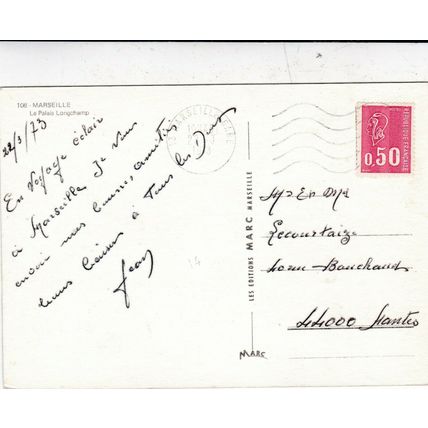 108 - MARSEILLE
Le Palais Longchamp
22/3/73
En Voyage éclair
à Marseille Je vous
envoi mes bonnes amitiés
bons baisers à Tous les Deux
Jean
LES EDITIONS MARC MARSEILLE
MARC
REPUBLIQUE FRANÇAISE
0,50
Mr Et Md
Lecourtaize
Bouchaud
44000 Nantes